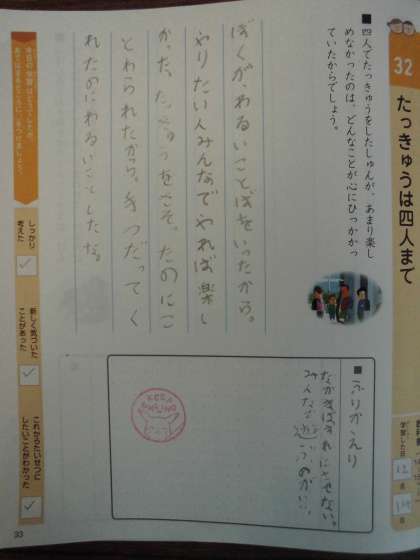 32
たっきゅうは四人まで
■四人でたっきゅうをしたしゅんが、あまり楽し
めなかったのは、どんなことが心にひっかかっ
ていたからでしょう。
ぼくが、わるいことばをいったから。
やりたい人みんなでやれば楽し
かった。
とわられたから。
れたのにわるいことしたな。
学習した日
12
月
日
■ふりかえり
なかまはずれにさせない。
みんなで遊ぶ
KEEP
SMILING
しっかり
考えた
新しく気づいた
ことがあった
これからたいせつに
したいことがわかった
33